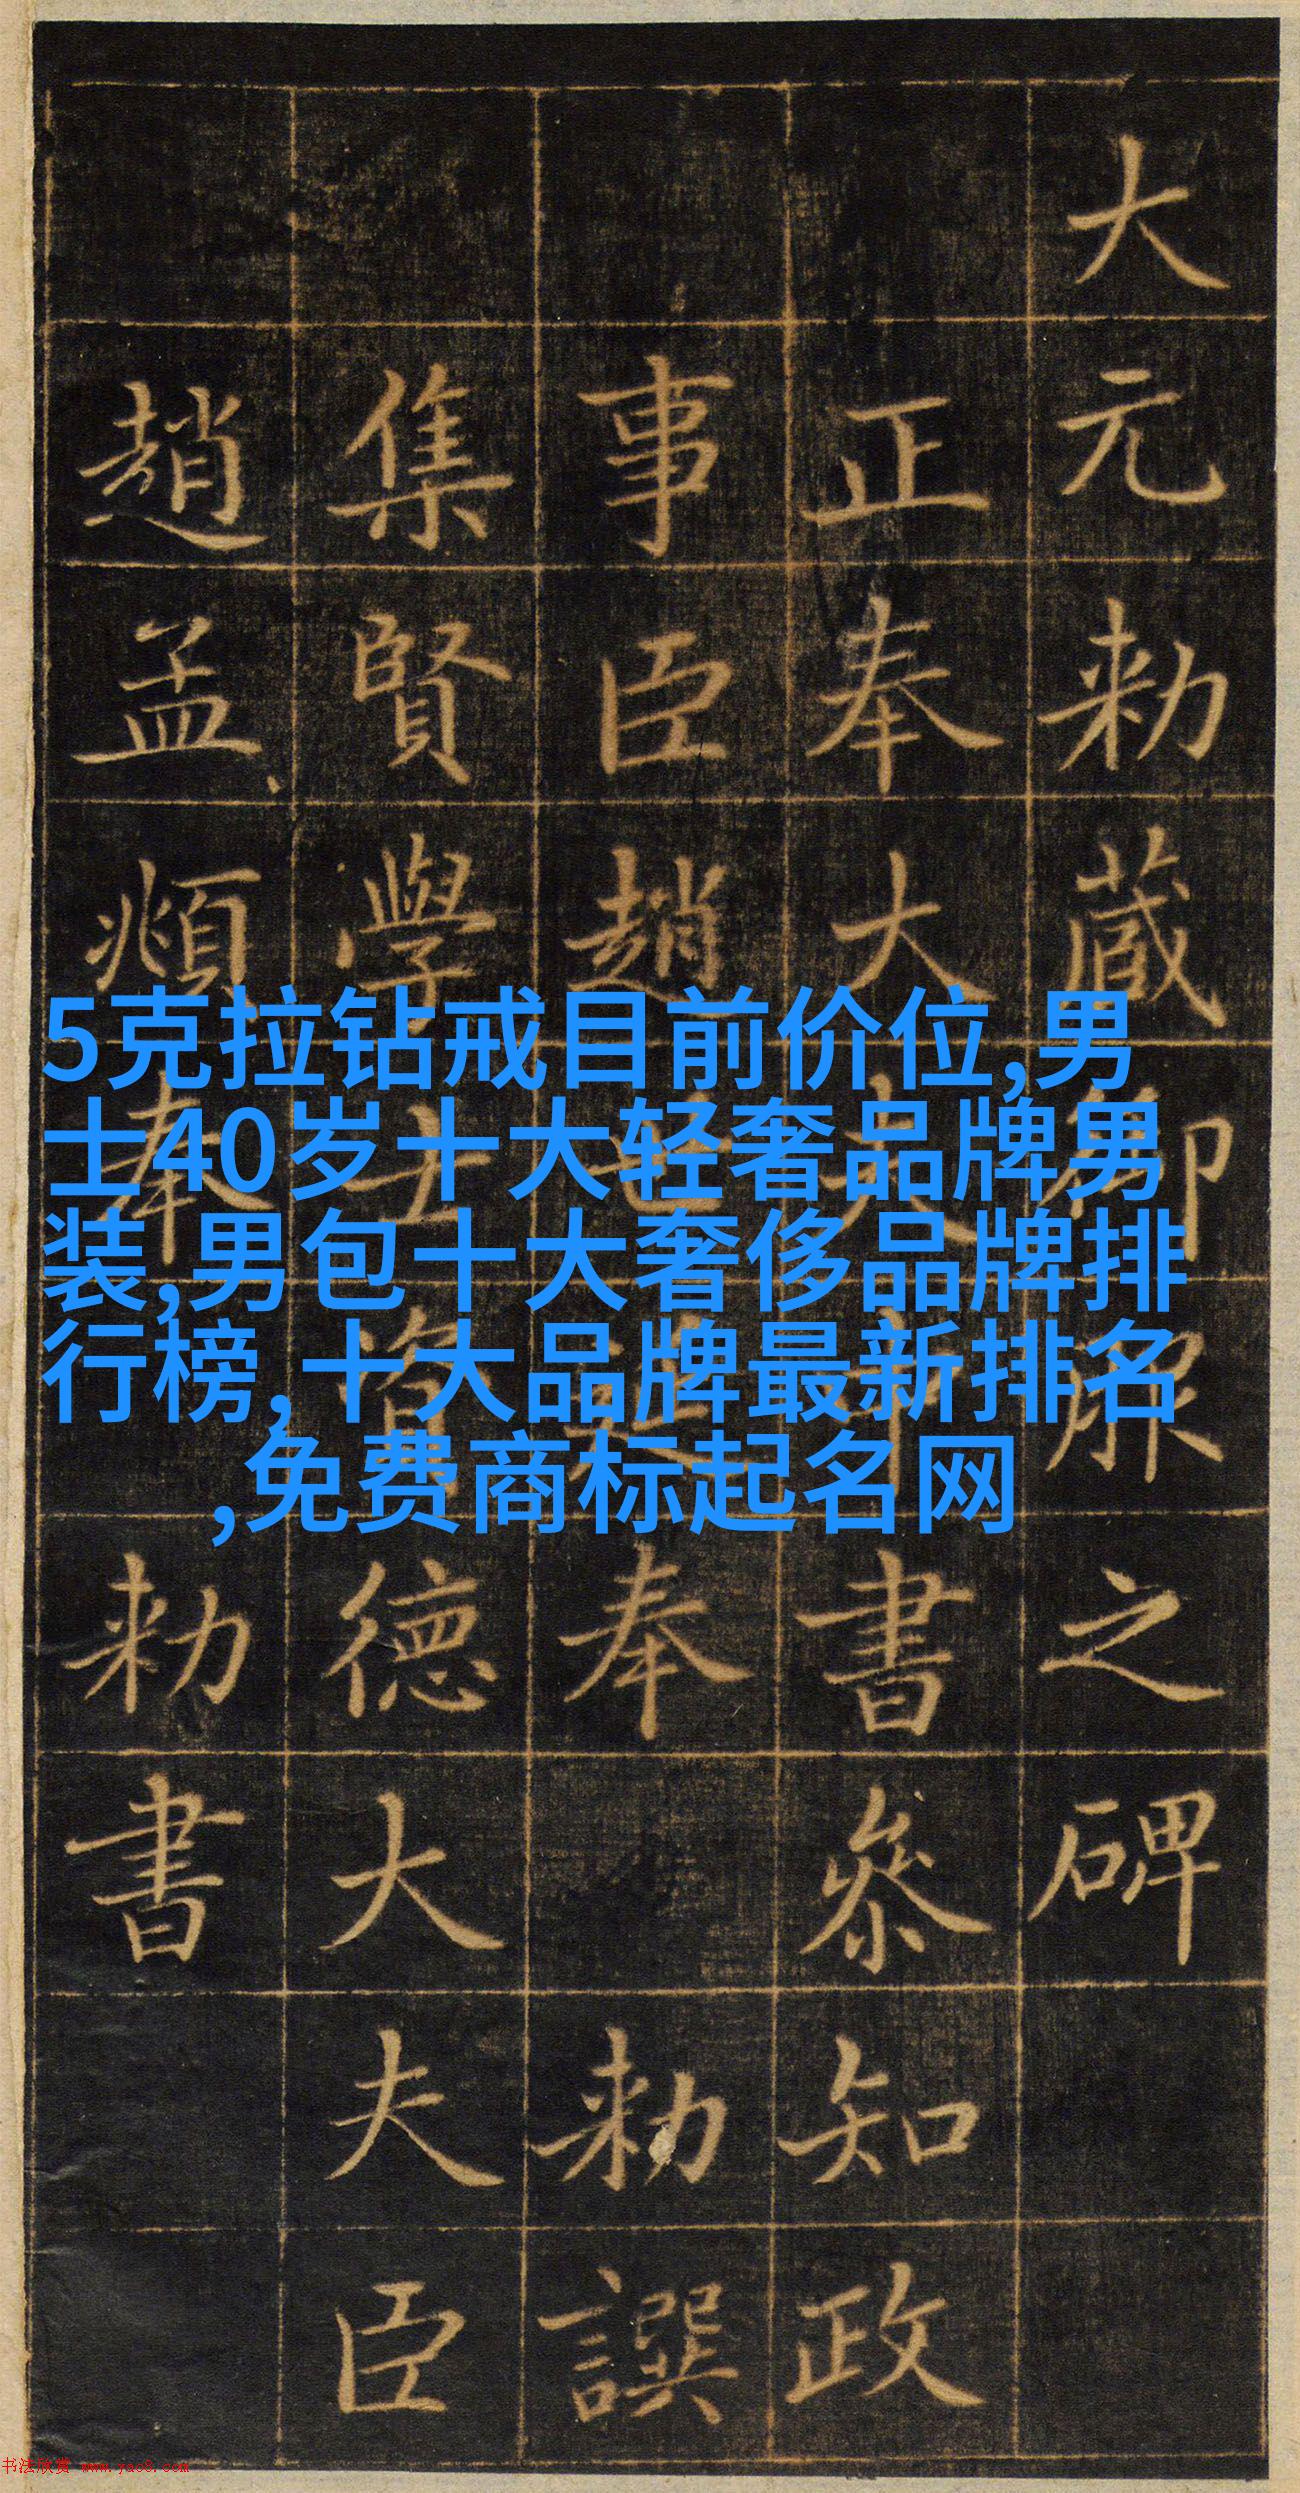 大元勑藏御服之碑
正奉大夫中書叅知政
事臣趙世延奉勑譔
集賢學士資德大夫臣
趙孟頫奉勑書
5克拉钻戒目前价位,男
士40岁十大轻奢品牌男
装,男包十大奢侈品牌排
行榜,十大品牌最新排名
,免费商标起名网
书法欣赏 www.yac8.com